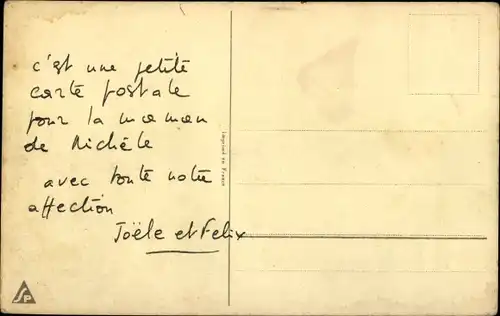 c'est une petite
carte postale
pour la maman
de Michèle
avec toute notre
affection
Joële et Felix
Imprimé en France
SP